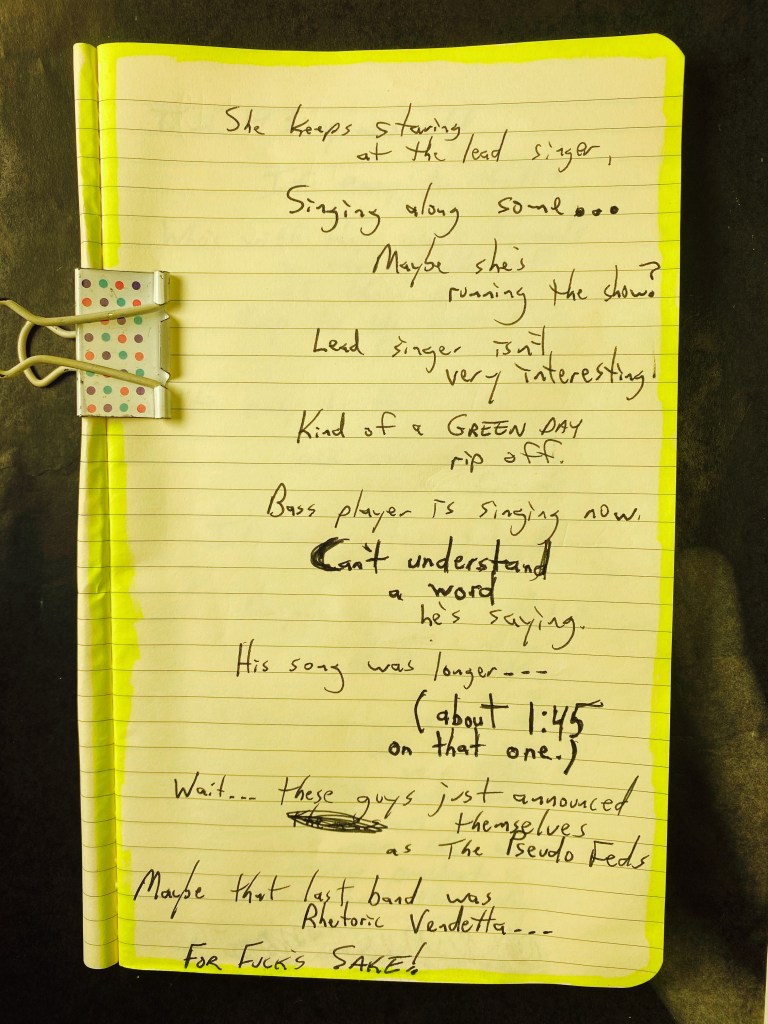 She keeps staring
at the lead singer,
Singing along some...
Maybe she's
running the show?
Lead singer isn't
very interesting!
Kind of a GREEN DAY
rip off.
Bass player is singing now.
Can't understand
a word
he's saying.
His song was longer---
(about 1:45
on that one.)
Wait... these guys just announced
themselves
as The Pseudo Feds
Maybe that last band was
Rhetoric Vendetta---
FOR FUCK'S SAKE!